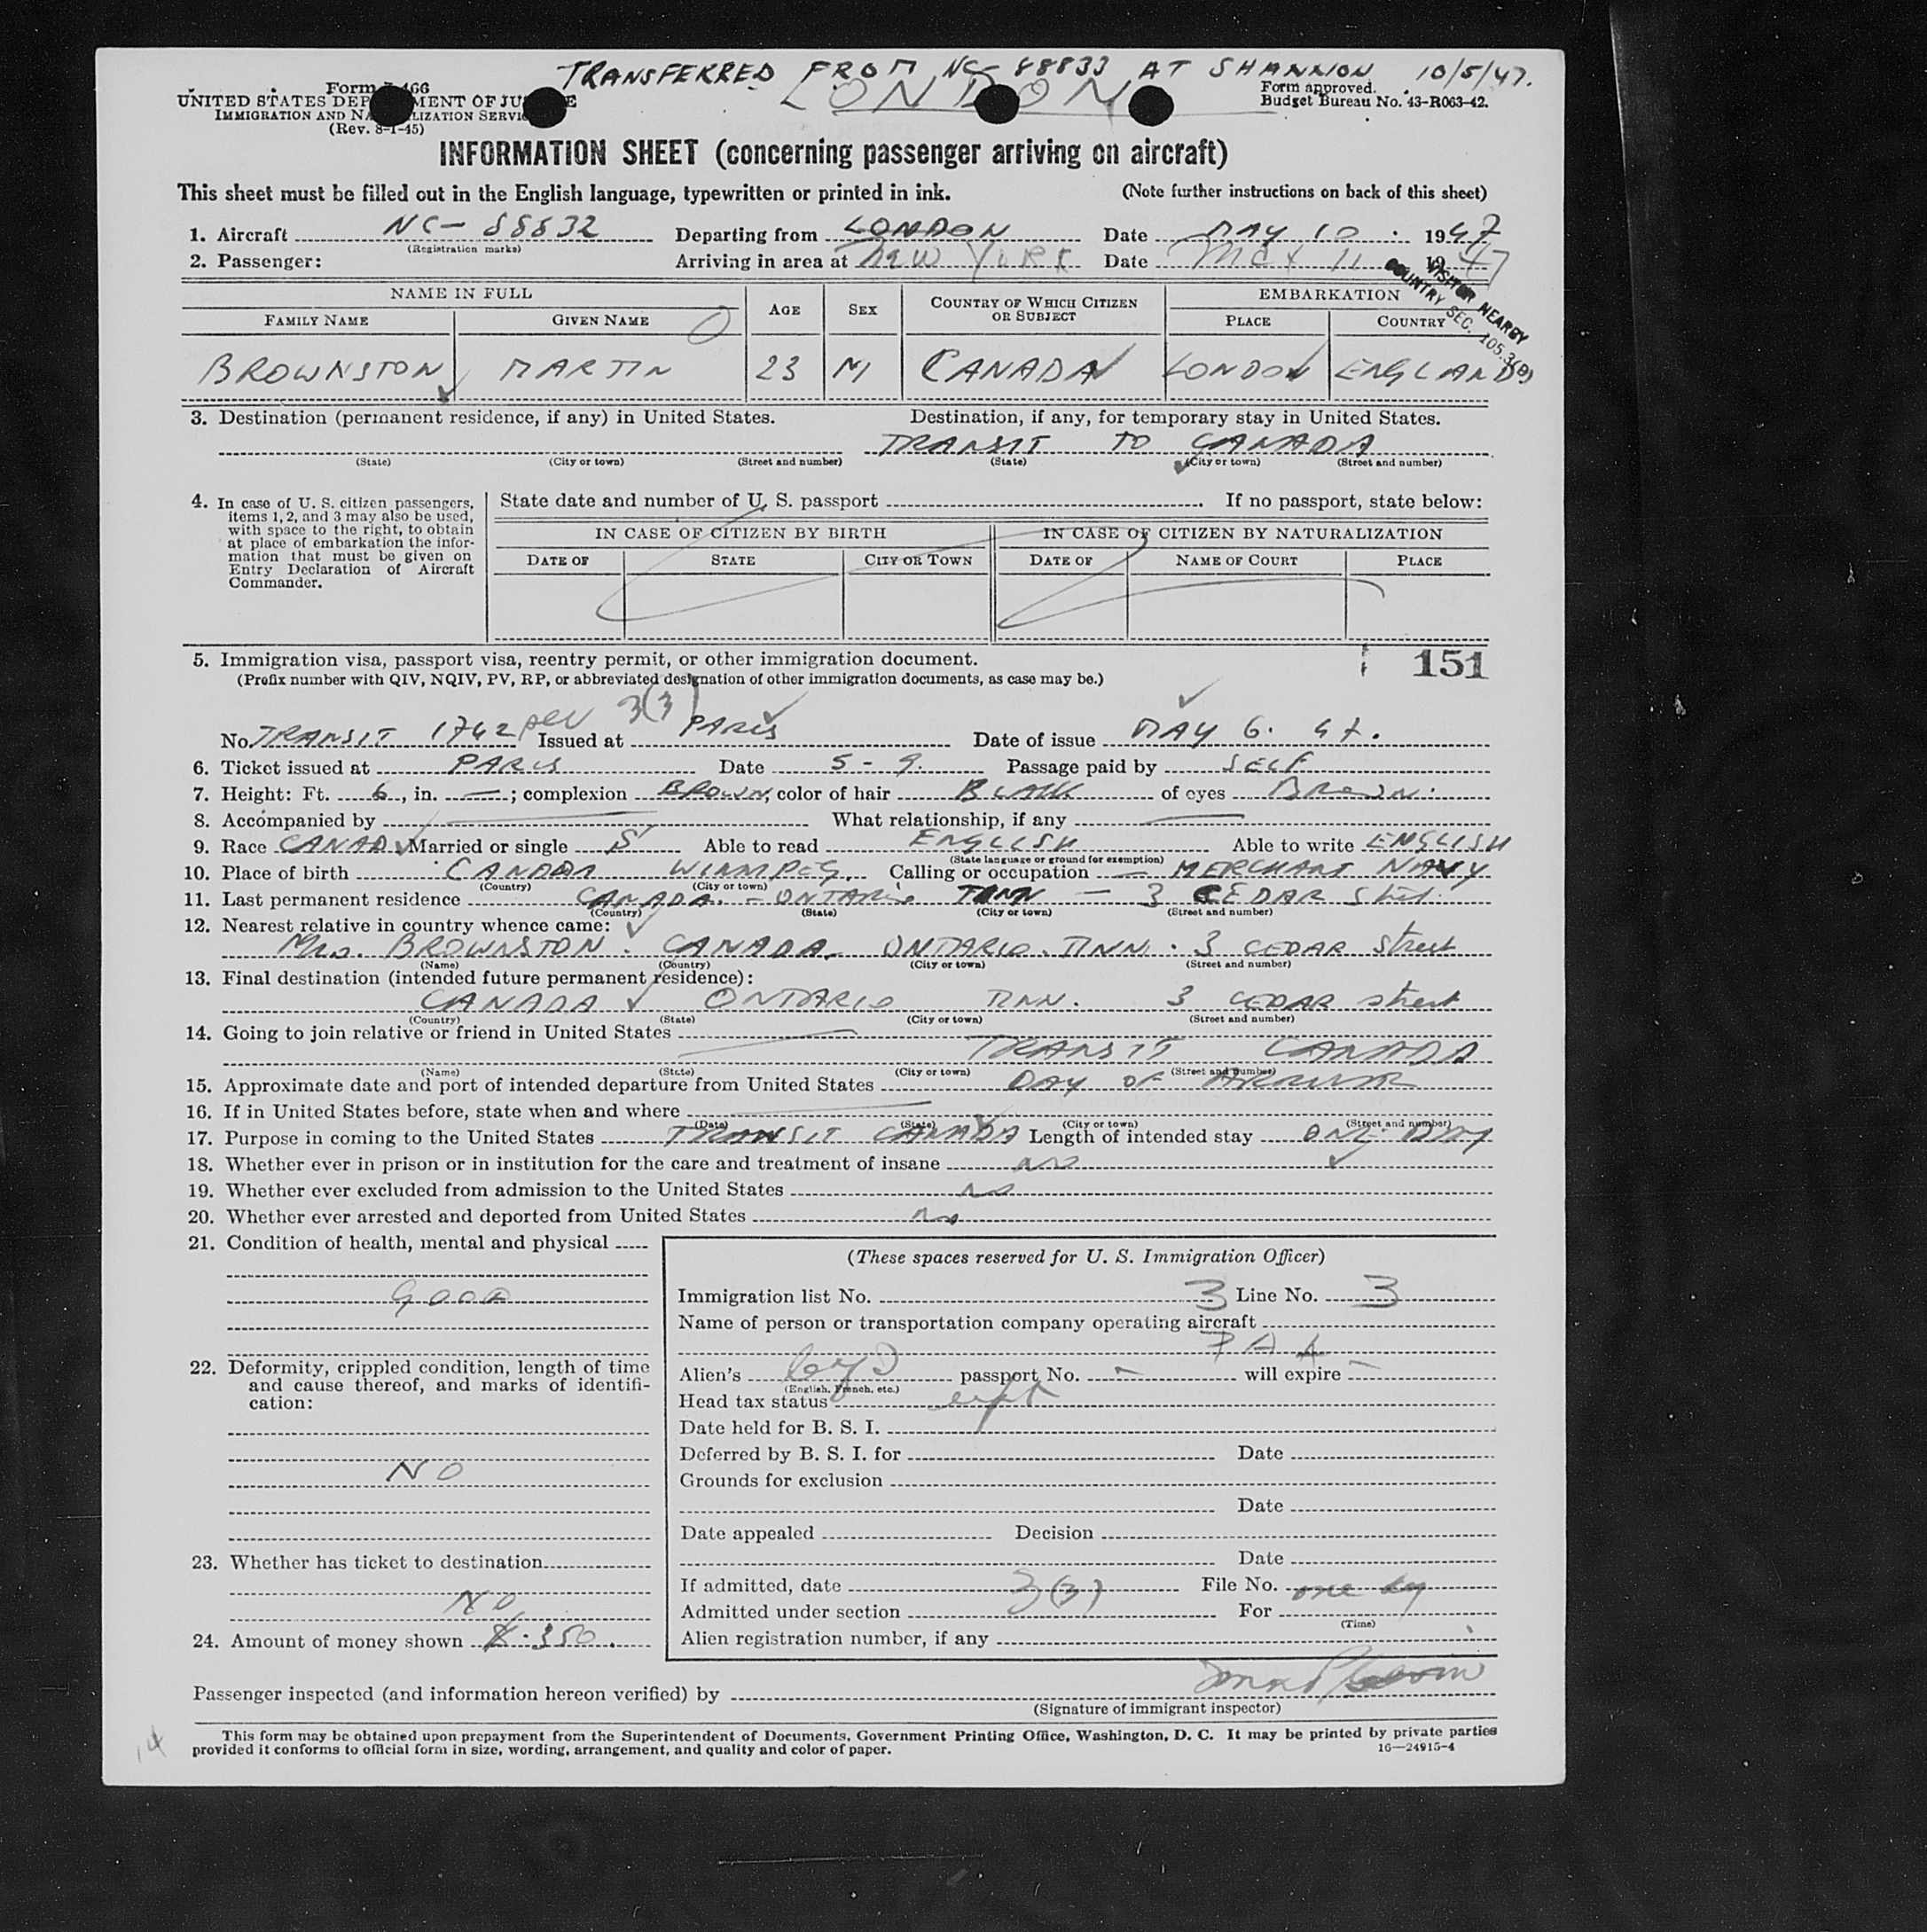 TRANSFERRED FROM NC-88833 AT SHANNON 10/5/47.
LONDON
Form I-466
UNITED STATES DEPARTMENT OF JUSTICE
IMMIGRATION AND NATURALIZATION SERVICE
(Rev. 8-1-45)
Form approved.
Budget Bureau No. 43-R063-42.
INFORMATION SHEET (concerning passenger arriving on aircraft)
This sheet must be filled out in the English language, typewritten or printed in ink. (Note further instructions on back of this sheet)
1. Aircraft NC-88832 Departing from LONDON Date MAY 10. 1947
(Registration marks)
2. Passenger: Arriving in area at New York Date May 11 1947
VISITOR NEARBY
COUNTRY SEC. 105.3(B)
NAME IN FULL AGE SEX COUNTRY OF WHICH CITIZEN OR SUBJECT EMBARKATION
FAMILY NAME GIVEN NAME PLACE COUNTRY
BROWNSTON MARTIN 23 M CANADA LONDON ENGLAND
3. Destination (permanent residence, if any) in United States. Destination, if any, for temporary stay in United States.
TRANSIT TO CANADA
(State) (City or town) (Street and number) (State) (City or town) (Street and number)
4. In case of U. S. citizen passengers, items 1, 2, and 3 may also be used, with space to the right, to obtain at place of embarkation the information that must be given on Entry Declaration of Aircraft Commander.
State date and number of U. S. passport . If no passport, state below:
IN CASE OF CITIZEN BY BIRTH IN CASE OF CITIZEN BY NATURALIZATION
DATE OF STATE CITY OR TOWN DATE OF NAME OF COURT PLACE
5. Immigration visa, passport visa, reentry permit, or other immigration document. 151
(Prefix number with QIV, NQIV, PV, RP, or abbreviated designation of other immigration documents, as case may be.)
3(3)
No. TRANSIT 1742 Issued at PARIS Date of issue MAY 6. 47.
6. Ticket issued at PARIS Date 5-9. Passage paid by SELF
7. Height: Ft. 6, in. —; complexion BROWN; color of hair BLACK of eyes BROWN.
8. Accompanied by What relationship, if any
9. Race CANAD. Married or single S Able to read ENGLISH Able to write ENGLISH
(State language or ground for exemption)
10. Place of birth CANADA WINNIPEG. Calling or occupation — MERCHANT NAVY
(Country) (City or town)
11. Last permanent residence CANADA. - ONTARIO - 3 CEDAR Street
(Country) (State) (City or town) (Street and number)
12. Nearest relative in country whence came:
Mrs. BROWNSTON. CANADA. ONTARIO. 3 CEDAR Street
(Name) (Country) (City or town) (Street and number)
13. Final destination (intended future permanent residence):
CANADA ONTARIO 3 CEDAR Street
(Country) (State) (City or town) (Street and number)
14. Going to join relative or friend in United States
TRANSIT CANADA
(Name) (State) (City or town) (Street and number)
15. Approximate date and port of intended departure from United States DAY OF
16. If in United States before, state when and where
(Date) (State) (City or town) (Street and number)
17. Purpose in coming to the United States TRANSIT CANADA Length of intended stay ONE DAY
18. Whether ever in prison or in institution for the care and treatment of insane NO
19. Whether ever excluded from admission to the United States NO
20. Whether ever arrested and deported from United States NO
21. Condition of health, mental and physical
GOOD
22. Deformity, crippled condition, length of time and cause thereof, and marks of identification:
NO
23. Whether has ticket to destination
NO
24. Amount of money shown $.350.
(These spaces reserved for U. S. Immigration Officer)
Immigration list No. 3 Line No. 3
Name of person or transportation company operating aircraft
PAA
Alien's passport No. - will expire -
(English, French, etc.)
Head tax status
Date held for B. S. I.
Deferred by B. S. I. for Date
Grounds for exclusion
Date
Date appealed Decision
Date
If admitted, date File No.
Admitted under section 3(3) For one day
(Time)
Alien registration number, if any
Passenger inspected (and information hereon verified) by
(Signature of immigrant inspector)
This form may be obtained upon prepayment from the Superintendent of Documents, Government Printing Office, Washington, D. C. It may be printed by private parties
provided it conforms to official form in size, wording, arrangement, and quality and color of paper. 16—24915-4
14